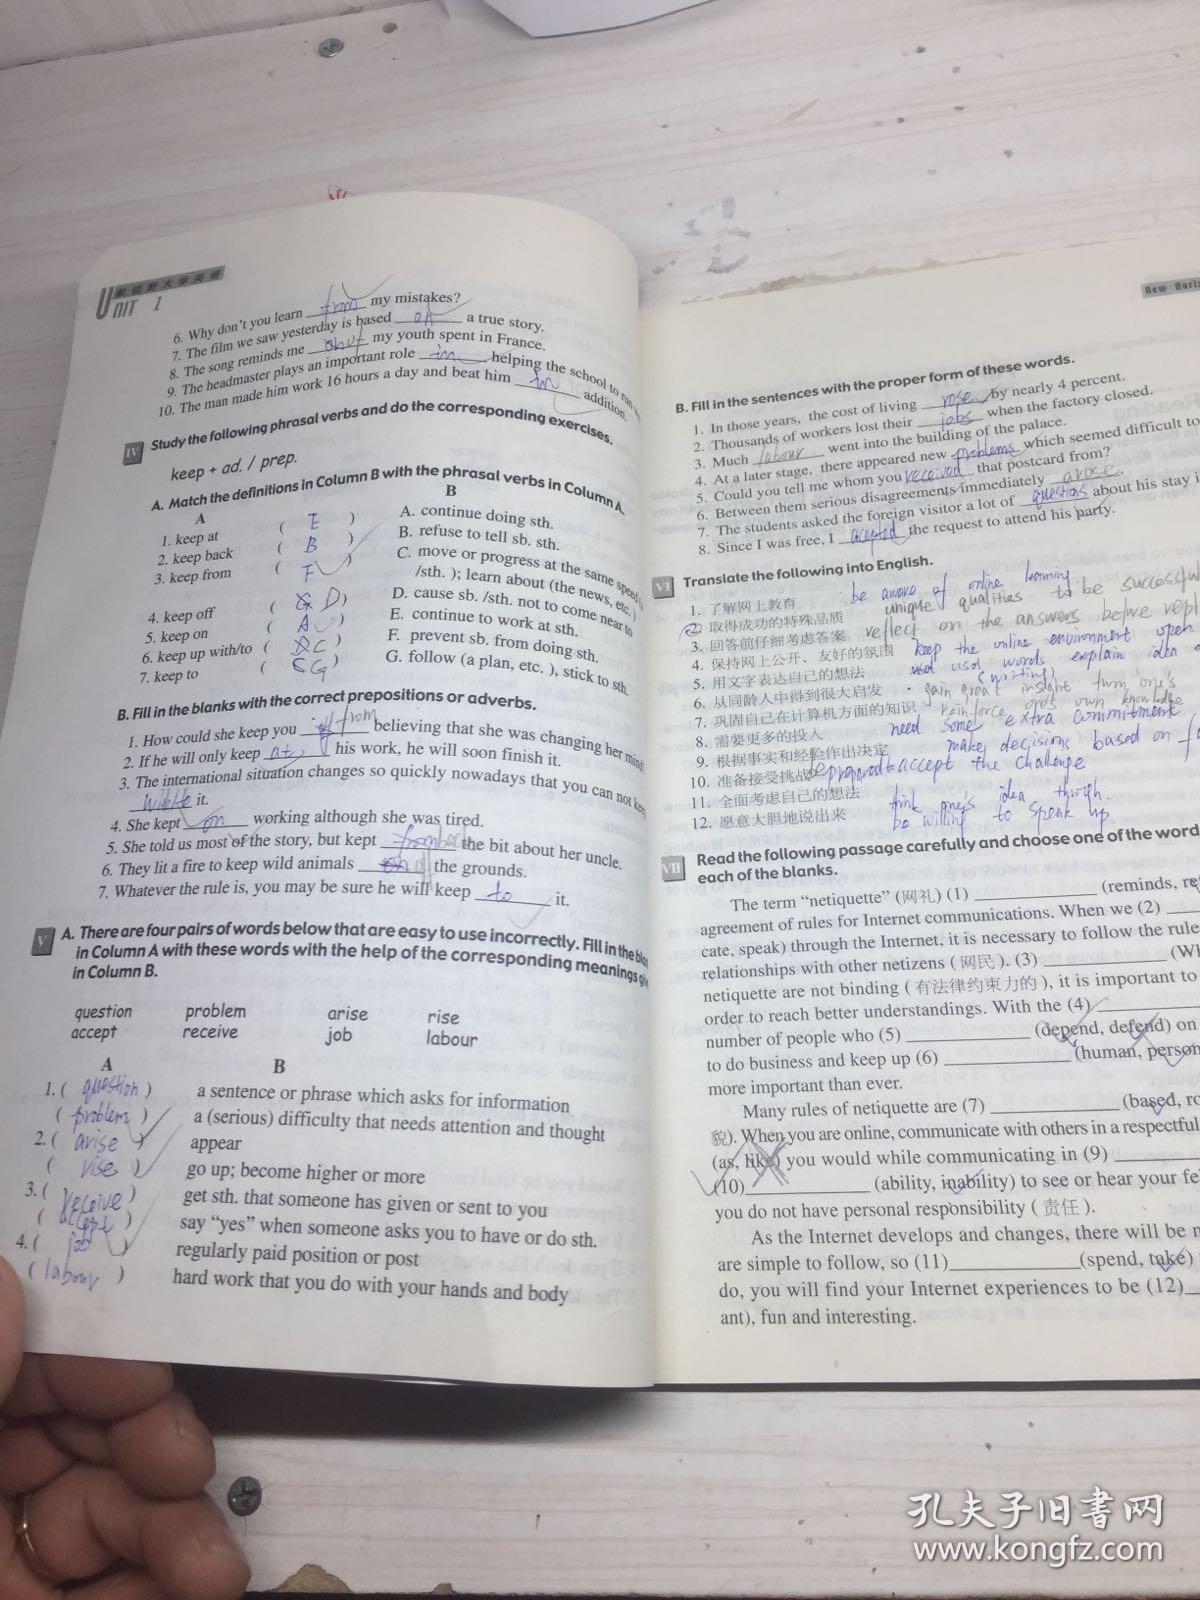 新视野大学英语
UNIT 1
6. Why don't you learn from my mistakes?
7. The film we saw yesterday is based on a true story.
8. The song reminds me my youth spent in France.
9. The headmaster plays an important role in helping the school to run
10. The man made him work 16 hours a day and beat him in addition.
IV Study the following phrasal verbs and do the corresponding exercises.
keep + ad. / prep.
A. Match the definitions in Column B with the phrasal verbs in Column A.
A B
1. keep at ( E ) A. continue doing sth.
2. keep back ( B ) B. refuse to tell sb. sth.
3. keep from ( F ) C. move or progress at the same speed
/sth. ); learn about (the news, etc.)
4. keep off ( D ) D. cause sb. /sth. not to come near to
5. keep on ( A ) E. continue to work at sth.
6. keep up with/to ( C ) F. prevent sb. from doing sth.
7. keep to ( G ) G. follow (a plan, etc. ), stick to sth.
B. Fill in the blanks with the correct prepositions or adverbs.
1. How could she keep you from believing that she was changing her mind
2. If he will only keep at his work, he will soon finish it.
3. The international situation changes so quickly nowadays that you can not keep
it.
4. She kept on working although she was tired.
5. She told us most of the story, but kept the bit about her uncle.
6. They lit a fire to keep wild animals the grounds.
7. Whatever the rule is, you may be sure he will keep to it.
V A. There are four pairs of words below that are easy to use incorrectly. Fill in the
in Column A with these words with the help of the corresponding meanings
in Column B.
question problem arise rise
accept receive job labour
A B
1. ( question ) a sentence or phrase which asks for information
( problem ) a (serious) difficulty that needs attention and thought
2. ( arise ) appear
( rise ) go up; become higher or more
3. ( receive ) get sth. that someone has given or sent to you
( accept ) say “yes” when someone asks you to have or do sth.
4. ( job ) regularly paid position or post
( labour ) hard work that you do with your hands and body
New Horiz
B. Fill in the sentences with the proper form of these words.
1. In those years, the cost of living rose by nearly 4 percent.
2. Thousands of workers lost their jobs when the factory closed.
3. Much labour went into the building of the palace.
4. At a later stage, there appeared new problems which seemed difficult to
5. Could you tell me whom you received that postcard from?
6. Between them serious disagreements immediately arose.
7. The students asked the foreign visitor a lot of questions about his stay i
8. Since I was free, I acepted the request to attend his party.
VI Translate the following into English.
1. 了解网上教育 be aware of online learning
2. 取得成功的特殊品质 unique qualities to be successful
3. 回答前仔细考虑答案 reflect on the answers before repl
4. 保持网上公开、友好的氛围 keep the online environment open
5. 用文字表达自己的想法 used words explain idea
(writing)
6. 从同龄人中得到很大启发 gain great insight from one's
7. 巩固自己在计算机方面的知识 own knowledge
8. 需要更多的投入 need some extra commitment
9. 根据事实和经验作出决定 make decisions based on
10. 准备接受挑战 be prepared to accept the challenge
11. 全面考虑自己的想法 think one's idea through.
12. 愿意大胆地说出来 be willing to speak up
VII Read the following passage carefully and choose one of the word
each of the blanks.
The term “netiquette” (网礼) (1) (reminds, re
agreement of rules for Internet communications. When we (2)
cate, speak) through the Internet, it is necessary to follow the rule
relationships with other netizens (网民). (3) (Wh
netiquette are not binding (有法律约束力的), it is important to
order to reach better understandings. With the (4)
number of people who (5) (depend, defend) on
to do business and keep up (6) (human, person
more important than ever.
Many rules of netiquette are (7) (based, ro
貌). When you are online, communicate with others in a respectful
(as, like) you would while communicating in (9)
(10) (ability, inability) to see or hear your fe
you do not have personal responsibility (责任).
As the Internet develops and changes, there will be n
are simple to follow, so (11) (spend, take)
do, you will find your Internet experiences to be (12)
ant), fun and interesting.
孔夫子旧书网
www.kongfz.com